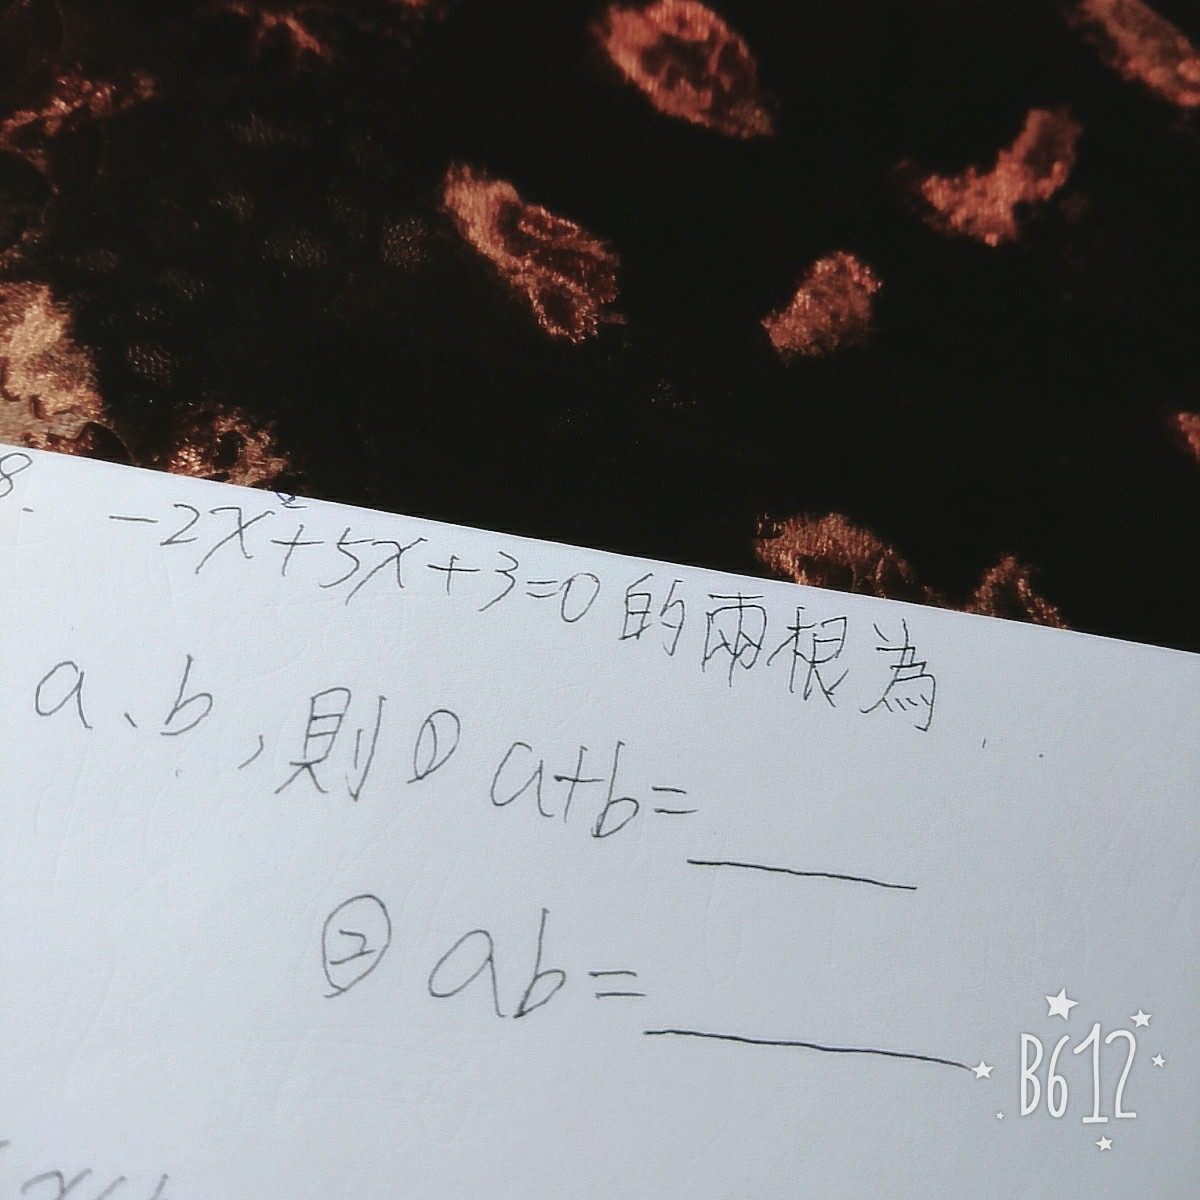 8. -2x²+5x+3=0 的兩根為
a、b,則① a+b=____
② ab=____
B612